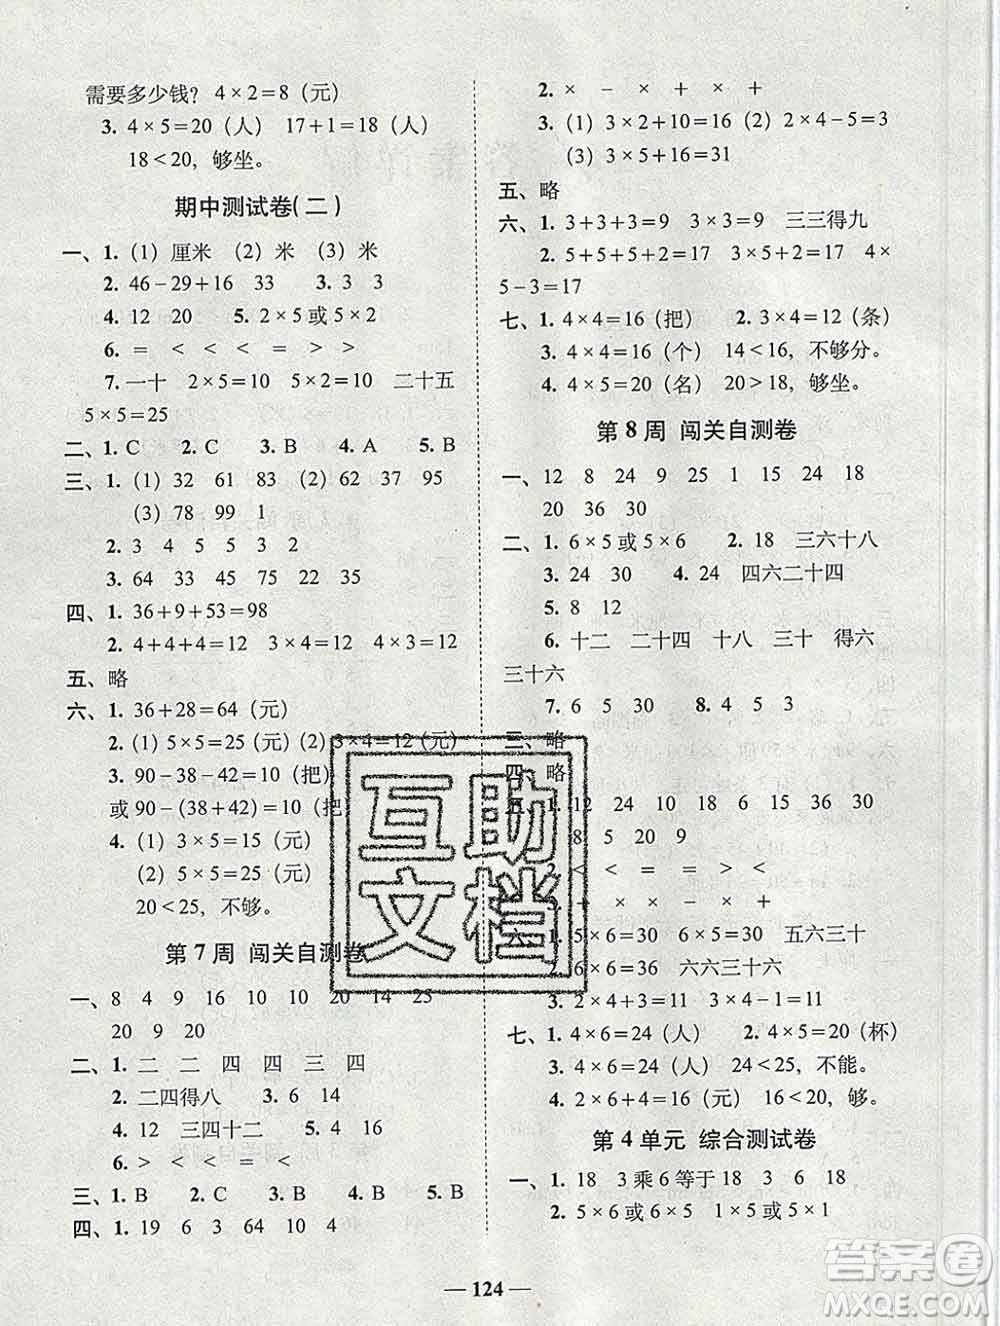 需要多少钱? 4×2=8（元）
3. 4×5=20（人） 17+1=18（人）
18<20，够坐。
期中测试卷(二)
一、1. (1) 厘米 (2) 米 (3) 米
2. 46-29+16 33 3. 3 3
4. 12 20 5. 2×5 或 5×2
6. = < < < = =
7. 一十 2×5=10 5×2=10 二十五
5×5=25
二、1. C 2. C 3. B 4. A 5. B
三、1. (1) 32 61 83 (2) 62 37 95
(3) 78 99 1
2. 3 4 5 5 3 2
3. 64 33 45 75 22 35
四、1. 36+9+53=98
2. 4+4+4=12 3×4=12 4×3=12
五、略
六、1. 36+28=64（元）
2. (1) 5×5=25（元）(2) 3×4=12（元）
3. 90-38-42=10（把）
或 90-(38+42)=10（把
4. (1) 3×5=15（元）
(2) 5×5=25（元）
20<25，不够。
第 7 周 闯关自测卷
一、8 4 9 16 10 10 20 14 25
20 9 20
二、1. 二 二 四 四 三 四
2. 二四得八 3. 6 14
4. 12 三四十二 5. 4 16
6. > < = < = <
三、1. B 2. C 3. B 4. C 5. B
四、1. 19 6 3 64 10 4
2. × - × + × +
3. (1) 3×2+10=16 (2) 2×4-5=3
(3) 3×5+16=31
五、略
六、1. 3+3+3=9 3×3=9 三三得九
2. 5+5+5+2=17 3×5+2=17 4×
5-3=17
七、1. 4×4=16（把） 2. 3×4=12（条）
3. 4×4=16（个） 14<16，不够分。
4. 4×5=20（名） 20>18，够坐。
第 8 周 闯关自测卷
一、12 8 24 9 25 1 15 24 18
20 36 30
二、1. 6×5 或 5×6 2. 18 三六十八
3. 24 30 4. 24 四六二十四
5. 8 12
6. 十二 二十四 十八 三十 得六
三十六
7. 6 5 30 8. 4 5 3
三、略
四、略
五、1. 12 24 10 18 15 30
8 5 20 9
2. < < < = > <
3. + × - - × +
六、1. 5×6=30 6×5=30 五六三十
2. 6×6=36 六六三十六
3. 2×4+3=11 3×4-1=11
七、1. 4×6=24（人） 2. 4×5=20（杯）
3. 4×6=24（人） 24<25，不能。
4. 2×6+4=16（元） 16<20，够。
第 4 单元 综合测试卷
一、1. 18 3 乘 6 等于 18 3 6 18
2. 5×6 或 6×5 1×5 或 5×1
互助
文档
答案卷
MXQE.COM
— 124 —